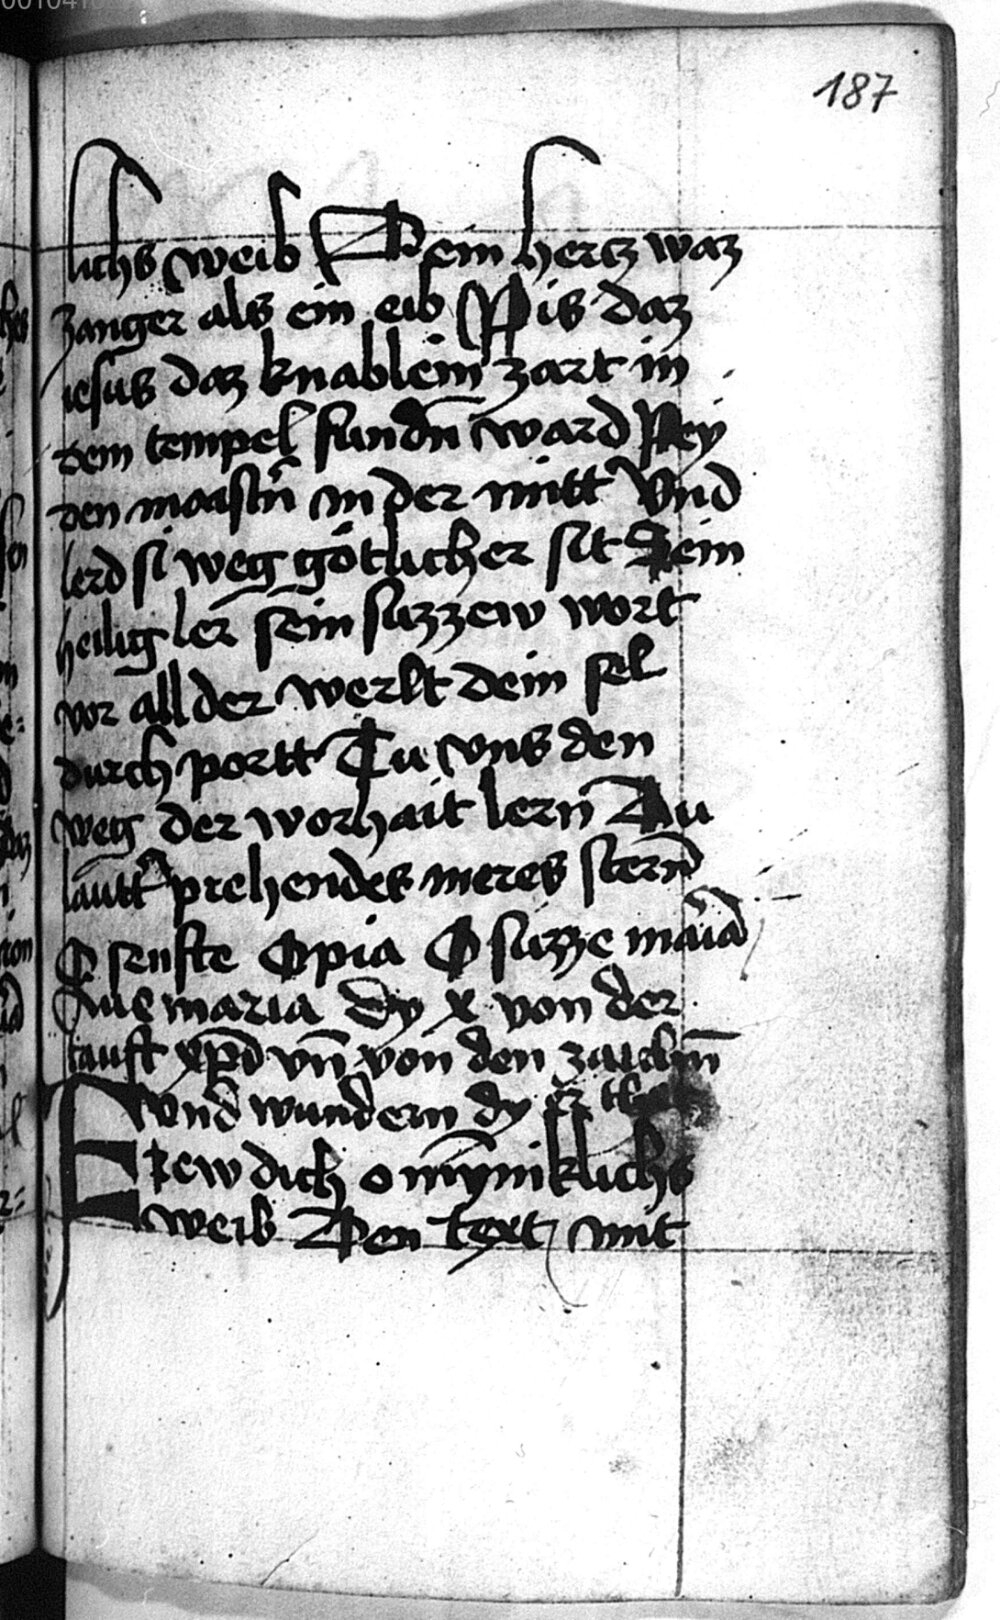 187
lichs weib Dein hertz waz
zanger als ein eib Pis daz
iesus daz knablein zart in
dem tempel fundn̄ ward Pey
den maistn̄ in der mitt Vnd
lerd si weg götlicher sit Sein
heilig ler sein suzzew wort
vor all der werlt dein sel
durch portt Tu vns den
weg der worhait lern̄ Du
lautt prehendes meres stern̄
O senfte O pia O suzze maria
Aue maria Dy x von der
tauft xp̄i vn̄ von den zaichn̄
vnd wundern dy er
Frew dich o mȳniklichs
weib Den text mit